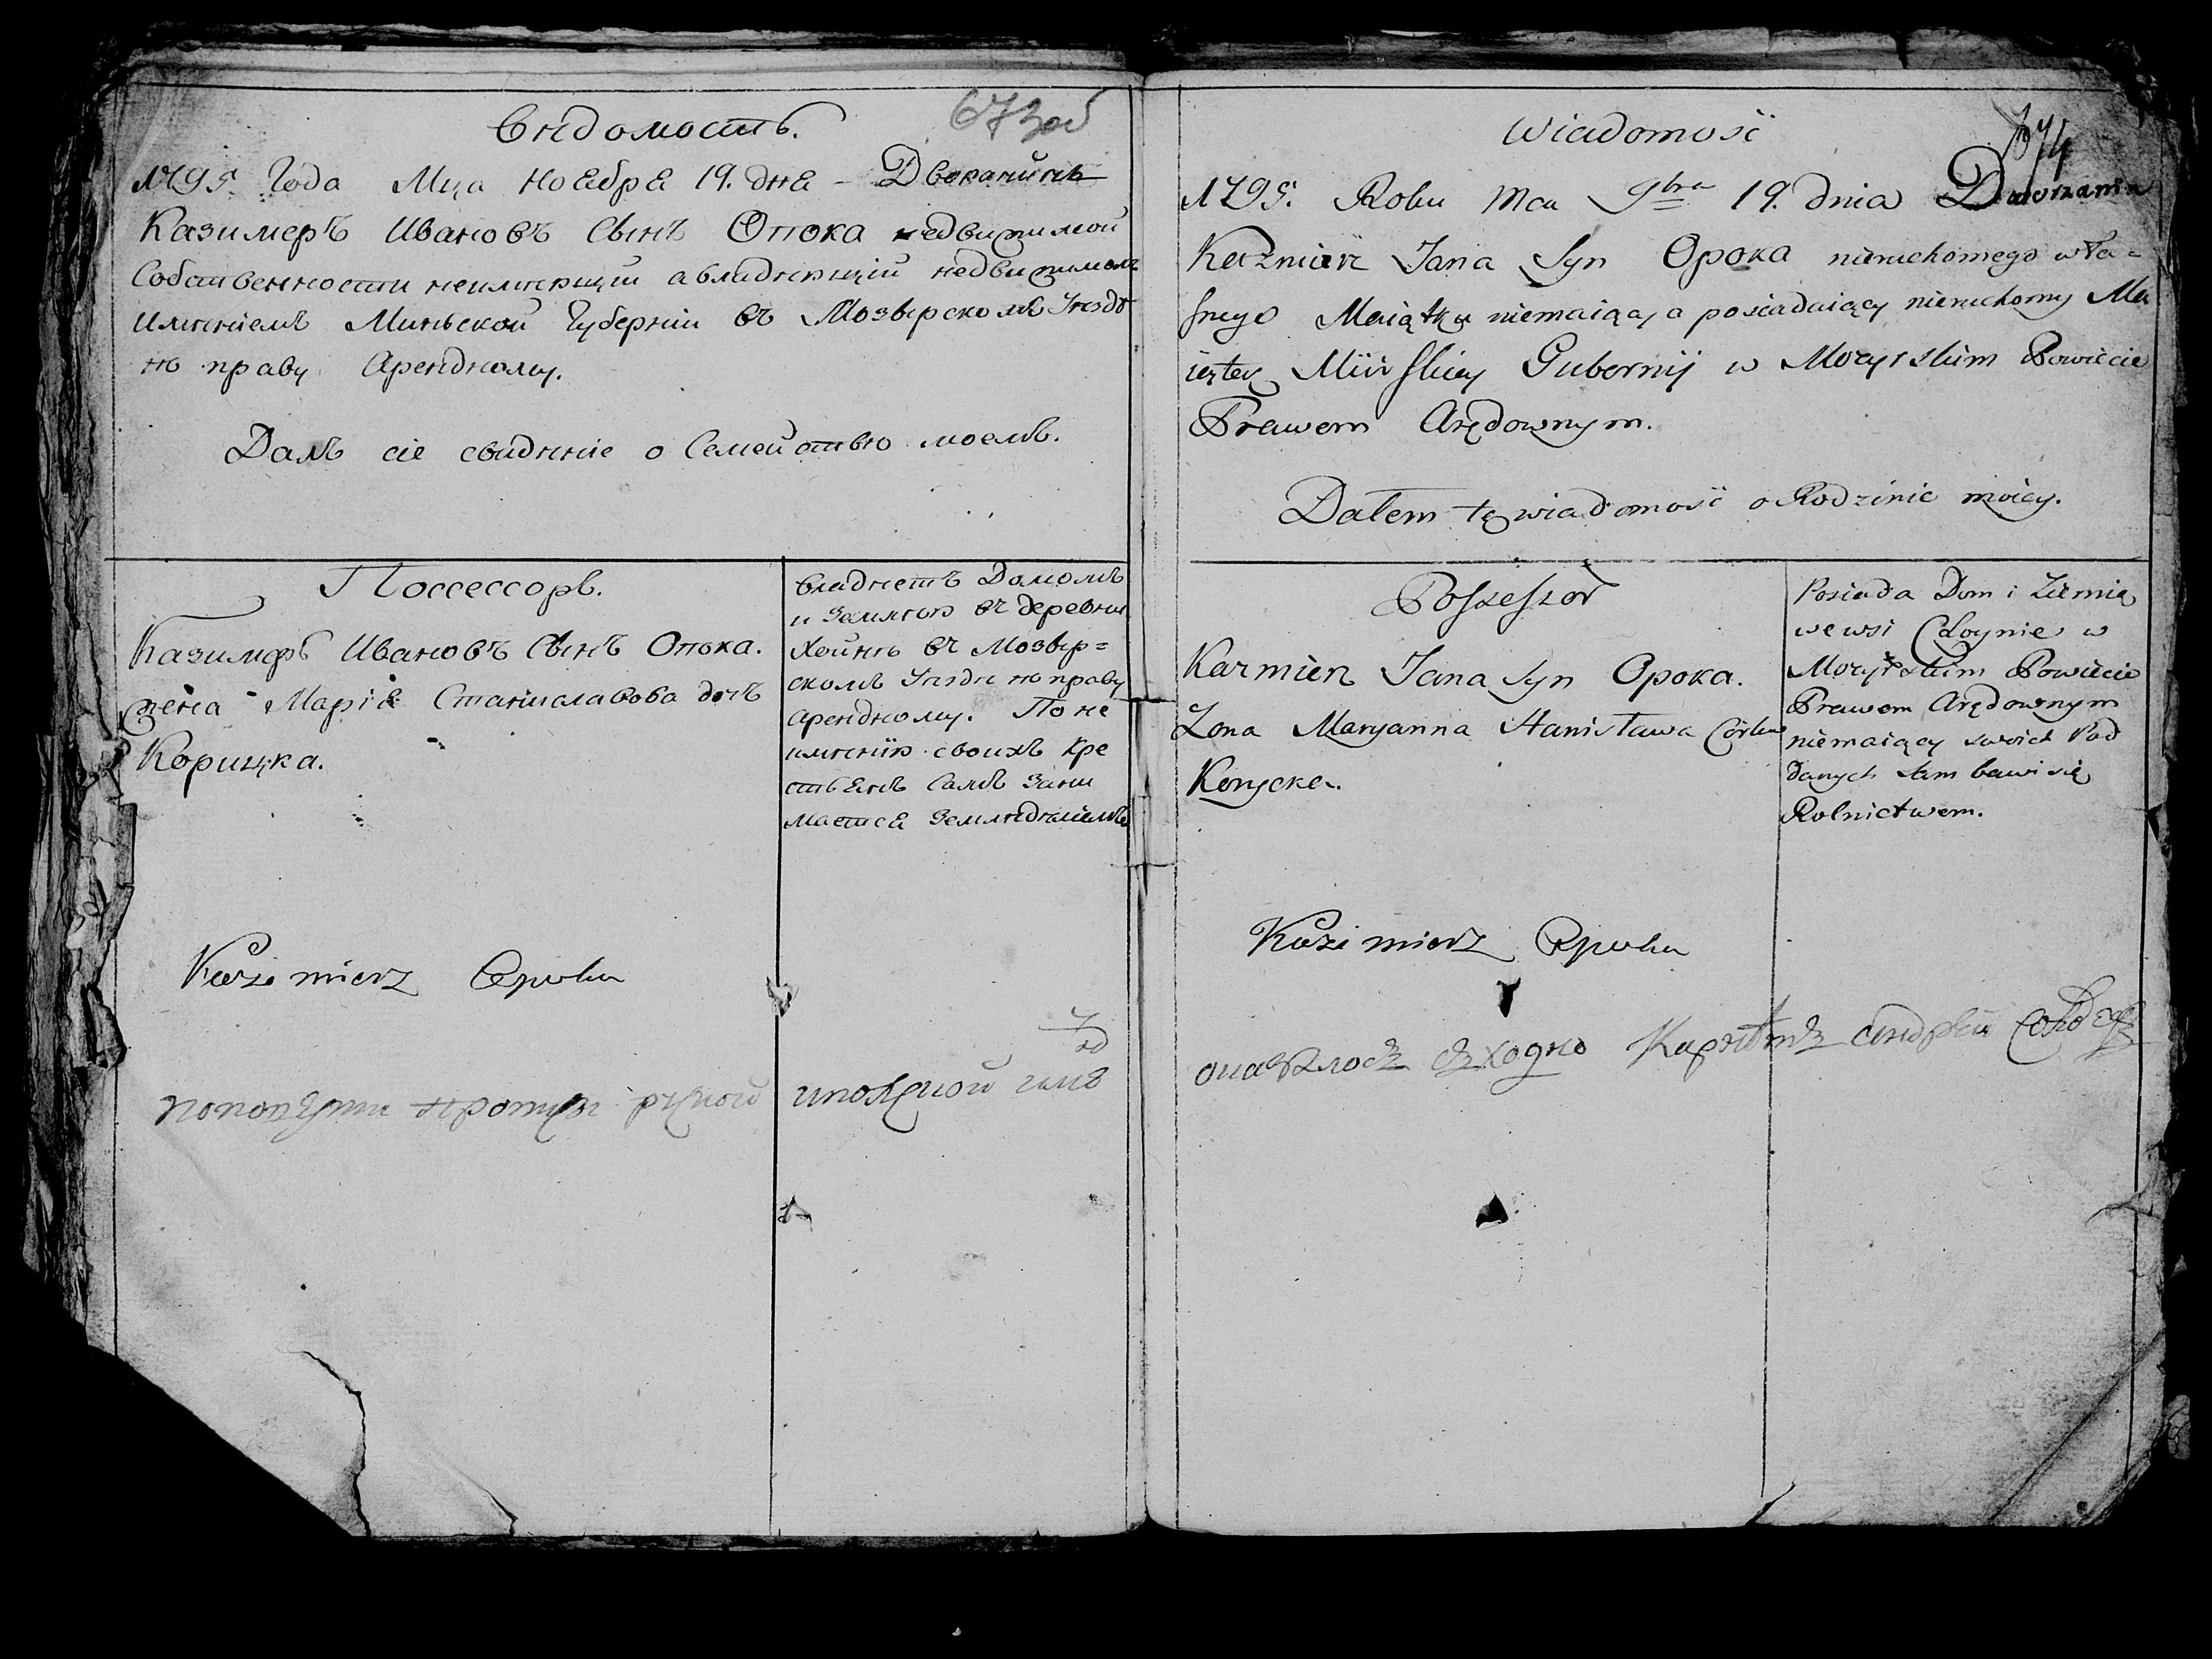 Вѣдомость.
673 об
1795. Года Мца Ноября 19. дня - Дворанинъ
Казимеръ Ивановъ Сынъ Опока недвижимой
Собственности неимѣющии авладѣющій недвижимомъ
имѣніемъ Миньской Губерніи въ Мозырскомъ Уездѣ
по праву Арендному.
Далъ сіе свидѣніе о Семействѣ моемъ.
Поссессоръ.
Казимеръ Ивановъ Сынъ Опока.
жена Марія Станиславова дочъ
Корицка.
владѣетъ Домомъ
и Землею въ деревни
Хойнѣ въ Мозыр=
скомъ Уездѣ по праву
арендному. По не
имѣнию своихъ кре
стьянъ Самъ Зани
мается Земледѣліемъ
Kazimierz Opoka
Wiadomość
674
1795. Roku Mca 9bra 19. dnia Dworzanin
Kaźmierz Jana Syn Opoka nieruchomego wła=
snego Maiątku niemaiący a posiadaiący nieruchomy Ma
iątek Mińskiey Gubernij w Mozyrskim Powiecie
Prawem Arędownym.
Dałem tę wiadomość o Rodzinie moiey.
Possessor
Kazmierz Jana Syn Opoka.
Zona Maryanna Stanisława Córka
Korycka.
Posiada Dom i Ziemię
we wsi Choynie w
Mozyrskim Powiecie
Prawem Arędownym
niemaiący swoich Pod
danych sam bawi się
Rolnictwem.
Kazimierz Opoka